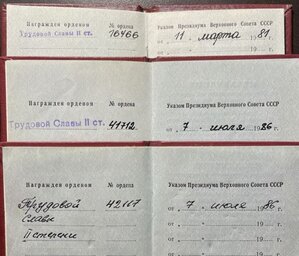 Награжден орденом № ордена
Трудовой Славы II ст. 16466
Указом Президиума Верховного Совета СССР
от „ 11 “ марта 1981
Награжден орденом № ордена
Трудовой Славы II ст. 41712
Указом Президиума Верховного Совета СССР
от „ 7 “ июля 1986
от „ “ 19
от „ “ 19
Награжден орденом № ордена
Трудовой 42117
Славы
II степени
Указом Президиума Верховного Совета СССР
от „ 7 “ июля 1986
от „ “ 19
от „ “ 19
от „ “ 19